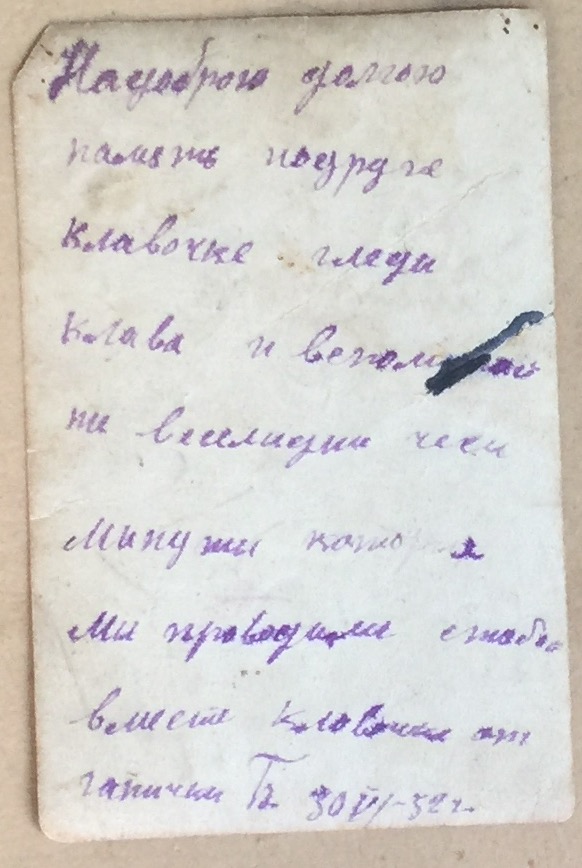 Надоброю долгою
паметь подруге
клавочке гледи
клава и вспоминай
ти веселидни чеси
минути которыя
Ми проводили стобой
вместе клавочки от
галички Г. 30 IV-52 г.